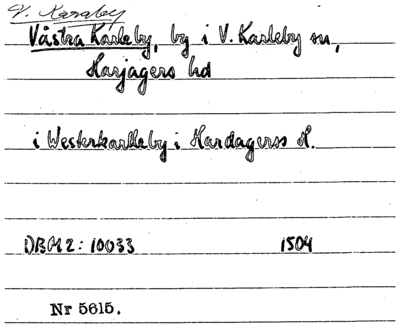 V. Karaby
Västra Karleby, by i V. Karleby sn,
Harjagers hd
i Westerkarlleby i Hardagerss H.
DBM 2: 10033 1504
Nr 5615.